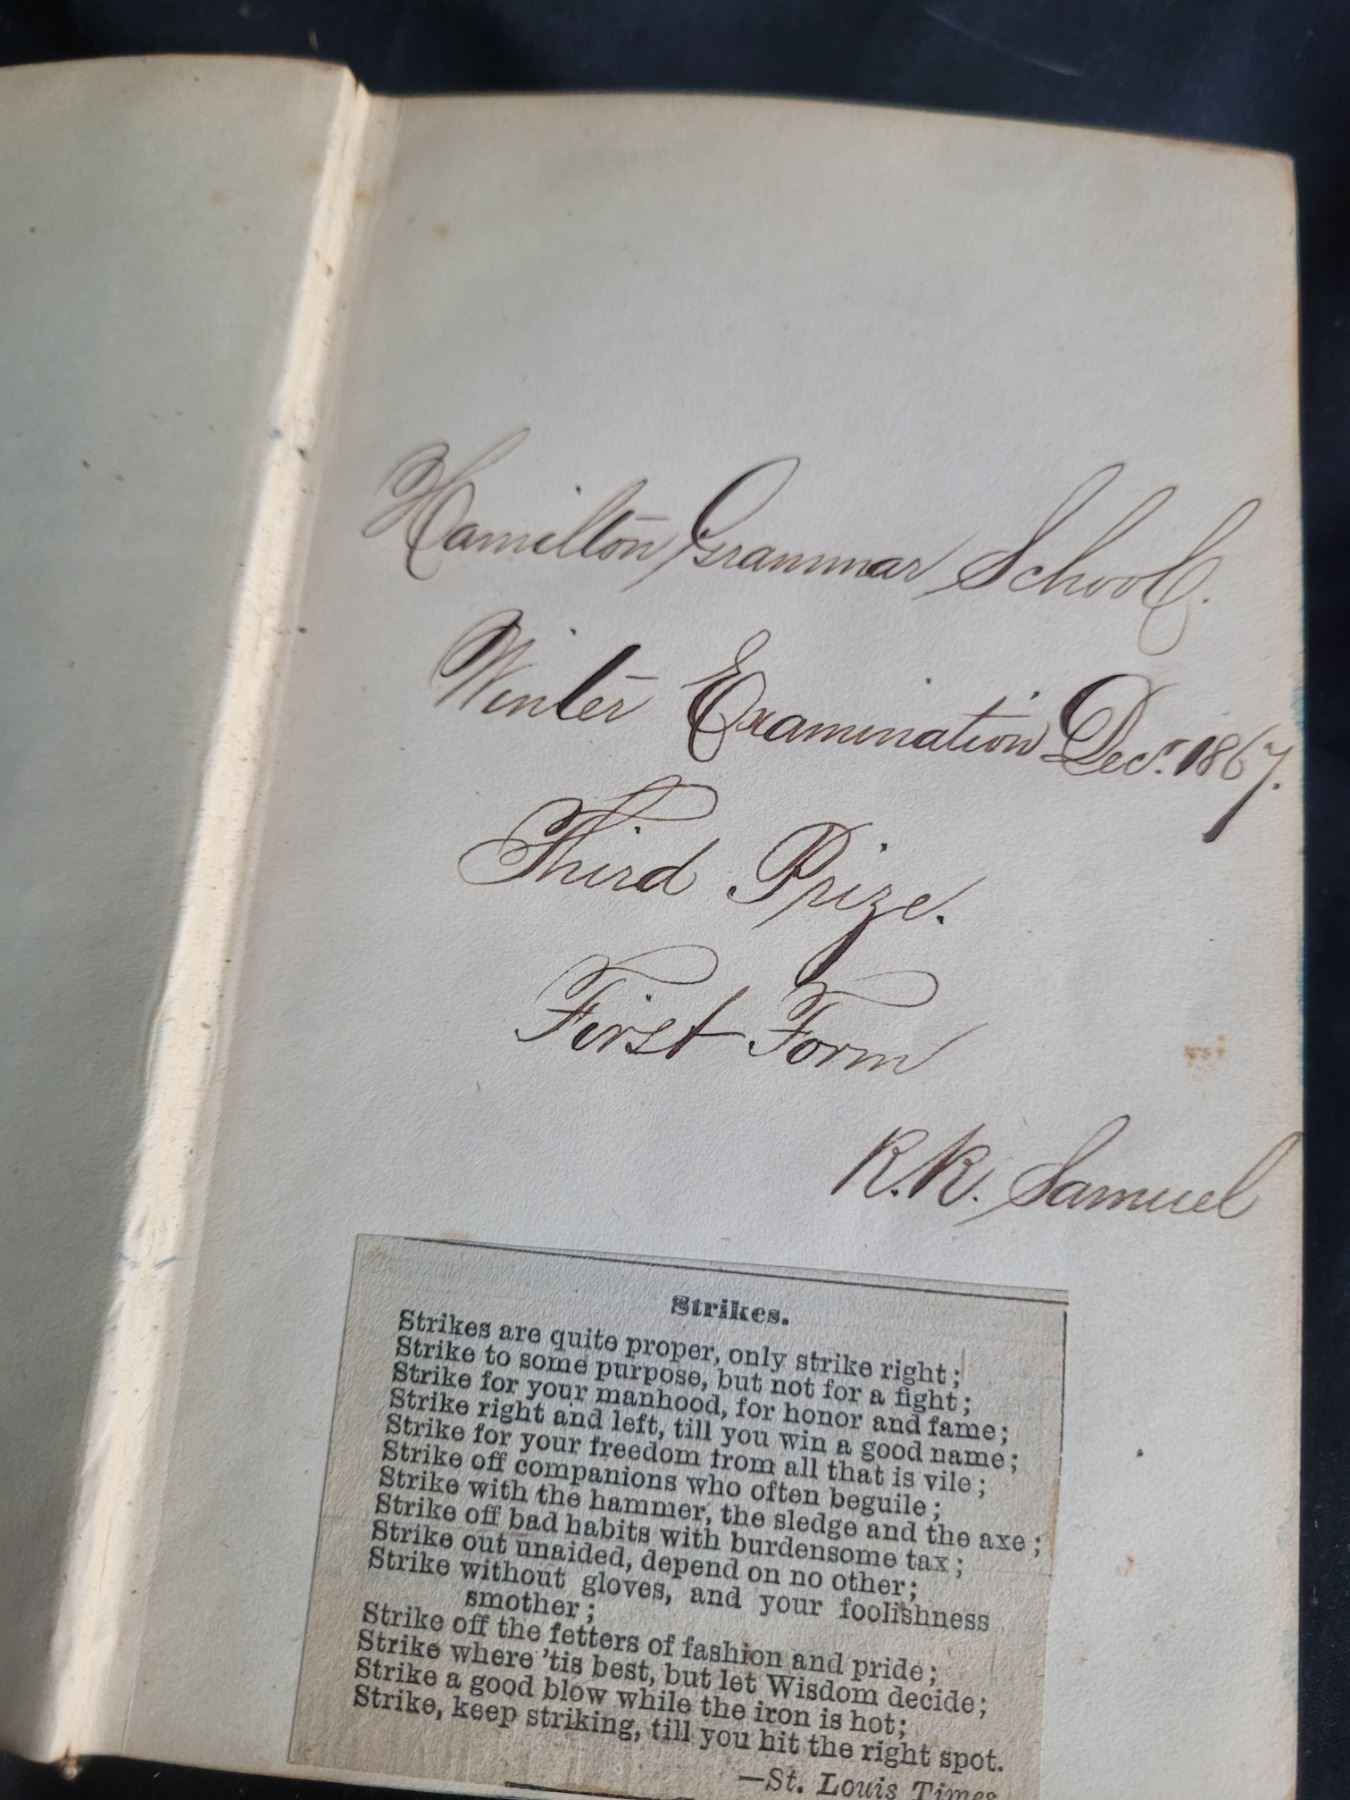 Hamilton Grammar School.
Winter Examination Decr. 1867.
Third Prize.
First Form
R.K. Samuel
Strikes.
Strikes are quite proper, only strike right;
Strike to some purpose, but not for a fight;
Strike for your manhood, for honor and fame;
Strike right and left, till you win a good name;
Strike for your freedom from all that is vile;
Strike off companions who often beguile;
Strike with the hammer, the sledge and the axe;
Strike off bad habits with burdensome tax;
Strike out unaided, depend on no other;
Strike without gloves, and your foolishness
smother;
Strike off the fetters of fashion and pride;
Strike where 'tis best, but let Wisdom decide;
Strike a good blow while the iron is hot;
Strike, keep striking, till you hit the right spot.
—St. Louis Times